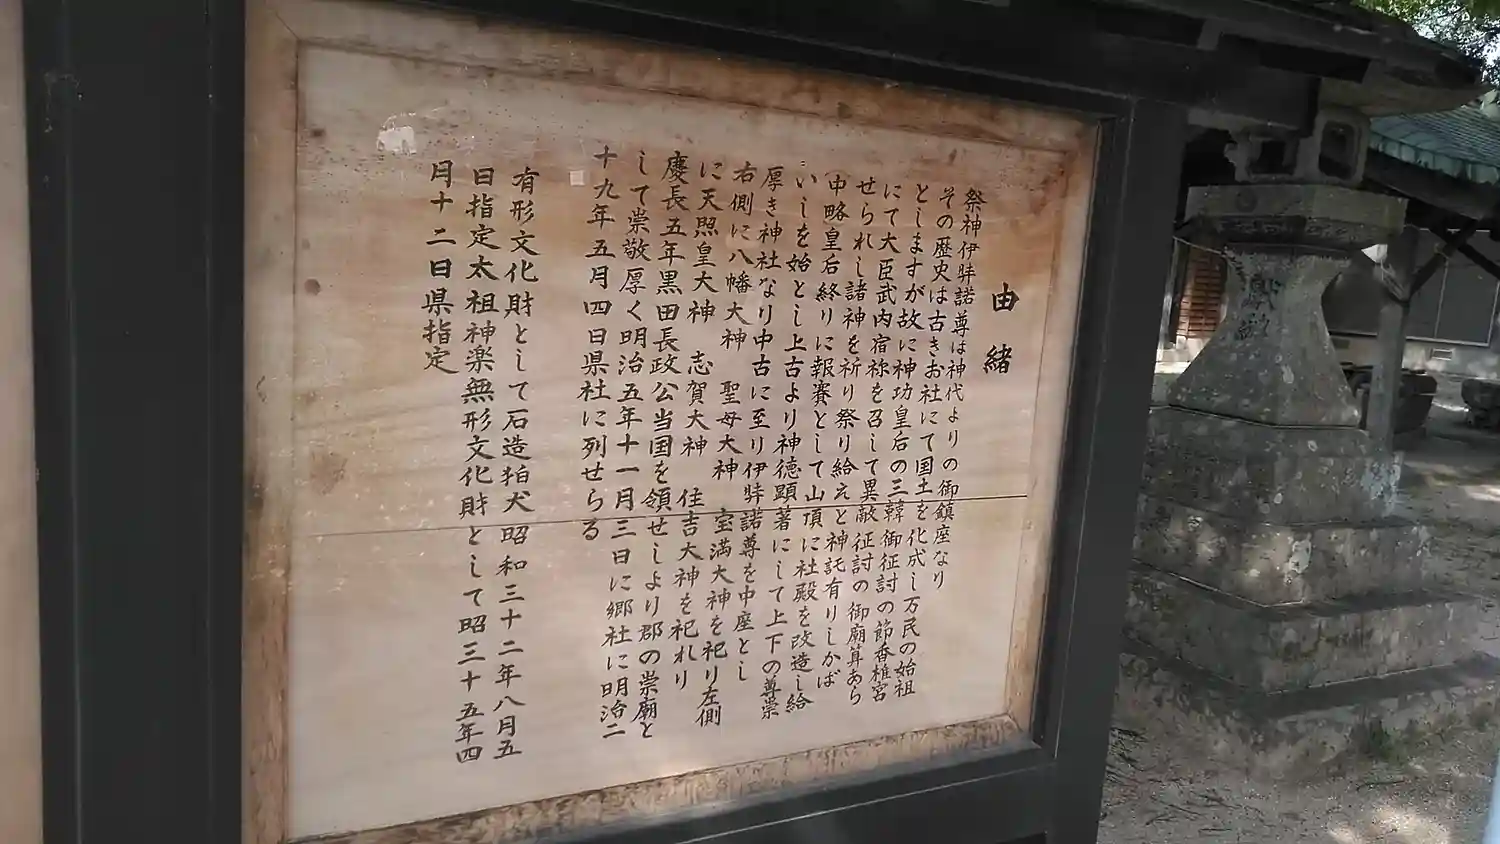 由緒
祭神伊弉諾尊は神代よりの御鎮座なり
その歴史は古きお社にて国土を化成し万民の始祖
としますが故に神功皇后の三韓御征討の節香椎宮
にて大臣武内宿祢を召して異敵征討の御廟算あら
せられし諸神を祈り祭り給えと神託有りしかば
中略皇后終りに報賽として山頂に社殿を改造し給
いしを始とし上古より神徳顕著にして上下の尊崇
厚き神社なり中古に至り伊弉諾尊を中座とし
右側に八幡大神 聖母大神 宝満大神を祀り左側
に天照皇大神 志賀大神 住吉大神を祀れり
慶長五年黒田長政公当国を領せしより郡の崇廟と
して崇敬厚く明治五年十一月三日に郷社に明治二
十九年五月四日県社に列せらる
有形文化財として石造狛犬昭和三十二年八月五
日指定太祖神楽無形文化財として昭三十五年四
月十二日県指定
献